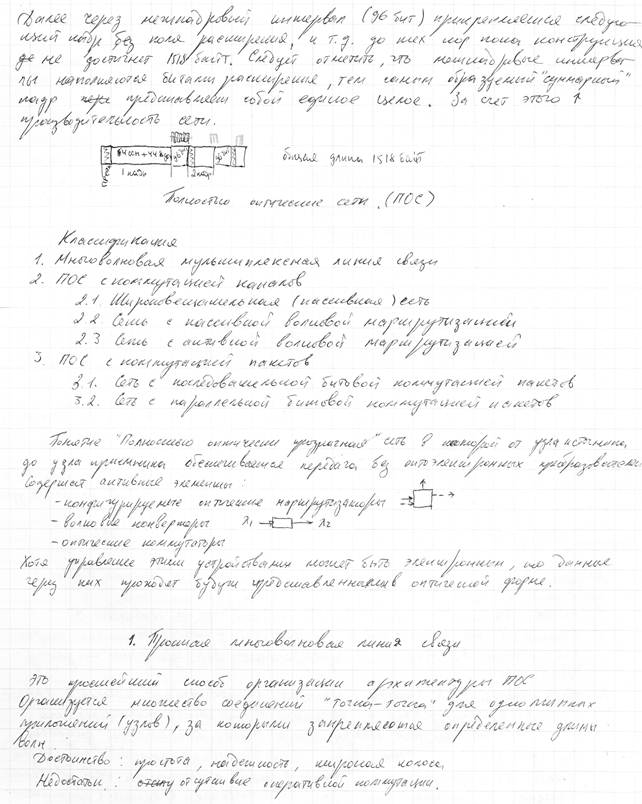 Далее через межкадровый интервал (96 бит) прикрепляется следую-
щий кадр без поля расширения, и т.д. до тех пор пока конструкция
не достигнет 1518 байт. Следует отметить, что межкадровые интерва-
лы наполняются битами расширения, тем самым образуемый "суммарный"
кадр представляет собой единое целое. За счет этого ↑
производительность сети.
1 кадр 2 кадр общая длина 1518 байт
Полностью оптические сети. (ПОС)
Классификация
1. Многоволновая мультиплексная линия связи
2. ПОС с коммутацией каналов
2.1. Широковещательная (пассивная) сеть
2.2. Сеть с пассивной волновой маршрутизацией
2.3 Сеть с активной волновой маршрутизацией
3. ПОС с коммутацией пакетов
3.1. Сеть с последовательной битовой коммутацией пакетов
3.2. Сеть с параллельной битовой коммутацией пакетов
Понятие "Полностью оптически прозрачная" сеть в которой от узла источника
до узла приемника обеспечивается передача без оптоэлектронных преобразователей
Содержат активные элементы:
- конфигурируемые оптические маршрутизаторы
- волновые конверторы λ1 → → λ2
- оптические коммутаторы
Хотя управление этими устройствами может быть электронным, но данные
через них проходят будучи представленными в оптической форме.
1. Простая многоволновая линия связи
Это простейший способ организации архитектуры ПОС
Организуется множество соединений "точка-точка" для однотипных
приложений (узлов), за которыми закрепляются определенные длины
волн.
Достоинство: простота, надежность, широкая полоса
Недостатки: отсутствие оперативной коммутации.